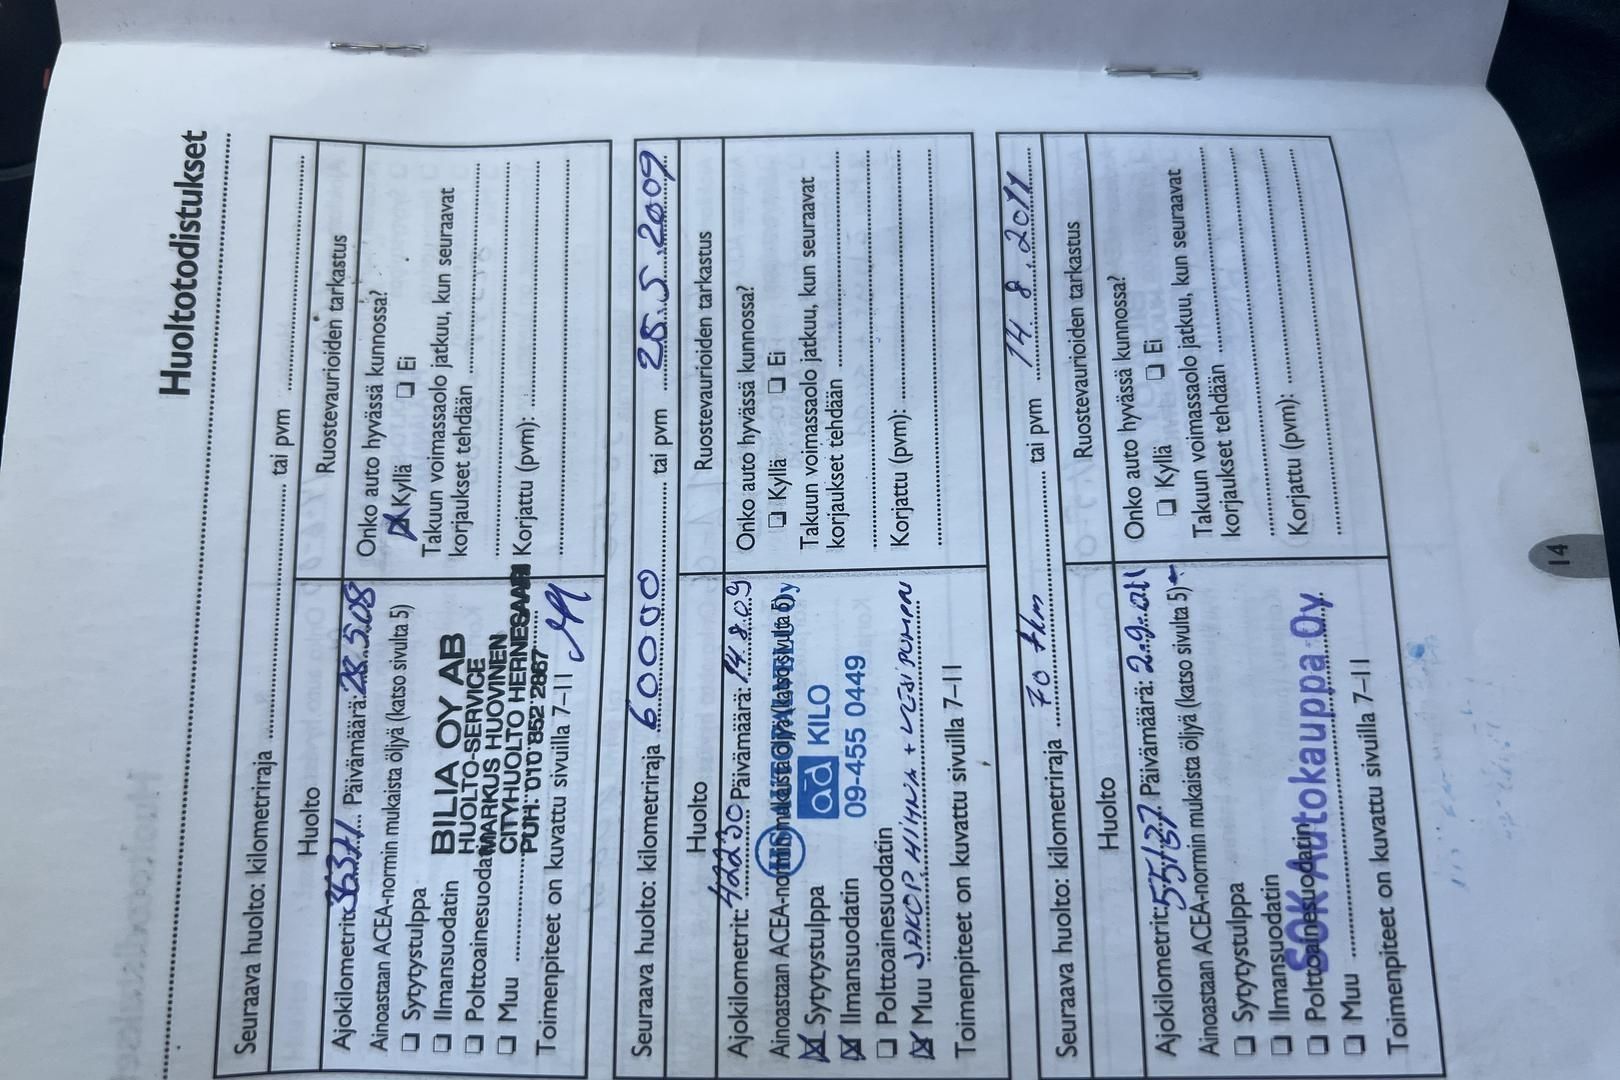 Huoltotodistukset
Seuraava huolto: kilometriraja ........ tai pvm ........
Huolto
Ruostevaurioiden tarkastus
Ajokilometrit: 36371 Päivämäärä: 28.5.08
Ainoastaan ACEA-normin mukaista öljyä (katso sivulta 5)
☐ Sytytystulppa
☐ Ilmansuodatin
☐ Polttoainesuodatin
☐ Muu ........
Toimenpiteet on kuvattu sivuilla 7–11
BILIA OY AB
HUOLTO-SERVICE
MARKUS HUOVINEN
CITYHUOLTO HERNESAARI
PUH. 010 852 2867
Onko auto hyvässä kunnossa?
☒ Kyllä ☐ Ei
Takuun voimassaolo jatkuu, kun seuraavat
korjaukset tehdään ........
Korjattu (pvm): ........
Seuraava huolto: kilometriraja 60000 tai pvm 28.5.2009
Huolto
Ruostevaurioiden tarkastus
Ajokilometrit: 42230 Päivämäärä: 14.8.09
Ainoastaan ACEA-normin mukaista öljyä (katso sivulta 5)
☒ Sytytystulppa
☒ Ilmansuodatin
☐ Polttoainesuodatin
☒ Muu JAKOP. HIHNA + VESIPUMPPU
Toimenpiteet on kuvattu sivuilla 7–11
ad KILO
09-455 0449
Onko auto hyvässä kunnossa?
☐ Kyllä ☐ Ei
Takuun voimassaolo jatkuu, kun seuraavat
korjaukset tehdään ........
Korjattu (pvm): ........
Seuraava huolto: kilometriraja 70 tkm tai pvm 14.8.2011
Huolto
Ruostevaurioiden tarkastus
Ajokilometrit: 55157 Päivämäärä: 2.9.2011
Ainoastaan ACEA-normin mukaista öljyä (katso sivulta 5)
☐ Sytytystulppa
☐ Ilmansuodatin
☐ Polttoainesuodatin
☐ Muu ........
Toimenpiteet on kuvattu sivuilla 7–11
SOK Autokauppa Oy
Onko auto hyvässä kunnossa?
☐ Kyllä ☐ Ei
Takuun voimassaolo jatkuu, kun seuraavat
korjaukset tehdään ........
Korjattu (pvm): ........
14